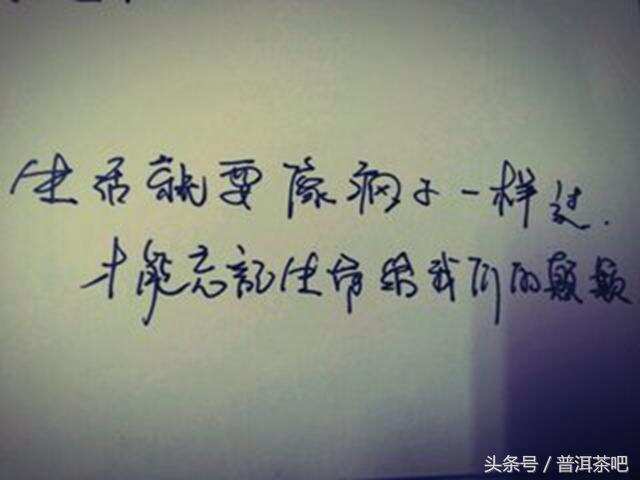 生活就要像疯子一样过.
才能忘记生活给我们的颠颠
头条号／普洱茶吧